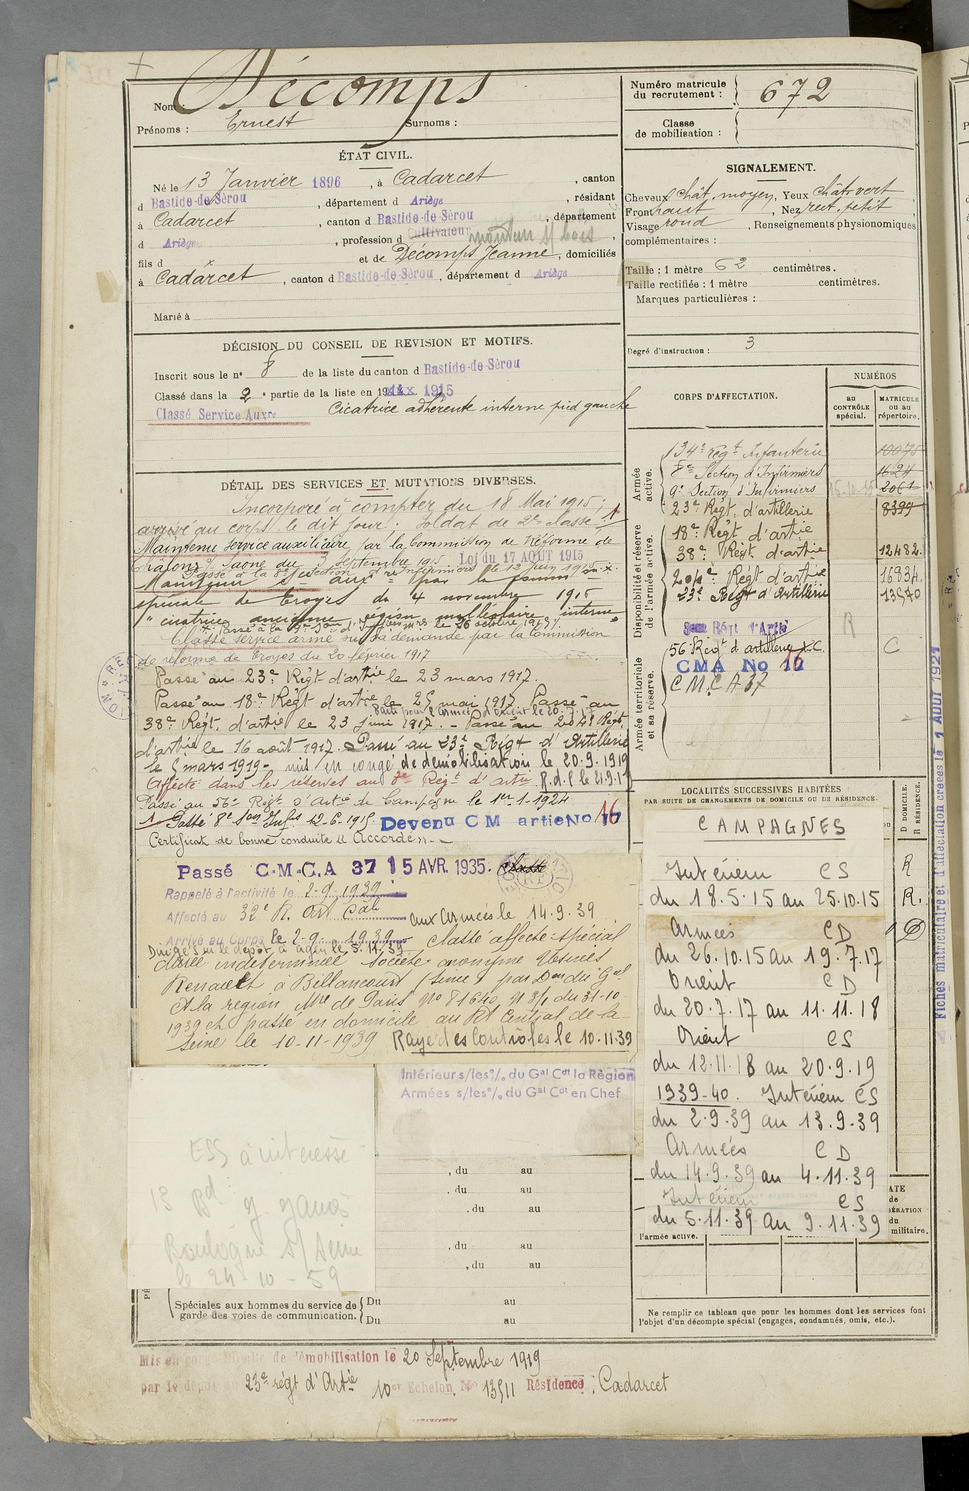 Nom Décomps
Prénoms : Ernest Surnoms :
Numéro matricule du recrutement : 672
Classe de mobilisation :
ÉTAT CIVIL.
Né le 13 Janvier 1896, à Cadarcet, canton
d Bastide-de-Sérou, département d Ariège, résidant
à Cadarcet, canton d Bastide-de-Sérou, département
d Ariège, profession d Cultivateur monteur s/ bois,
fils d x et de Décomps Jeanne, domiciliés
à Cadarcet, canton d Bastide-de-Sérou, département d Ariège
Marié à
SIGNALEMENT.
Cheveux chât. moyen, Yeux chât. vert
Front haut, Nez rect. petit,
Visage rond, Renseignements physionomiques
complémentaires :
Taille : 1 mètre 62 centimètres.
Taille rectifiée : 1 mètre centimètres.
Marques particulières :
Degré d'instruction : 3
DÉCISION DU CONSEIL DE REVISION ET MOTIFS.
Inscrit sous le n° 8 de la liste du canton d Bastide-de-Sérou
Classé dans la 2e partie de la liste en 1915
Classé Service Auxre Cicatrice adhérente interne pied gauche
DÉTAIL DES SERVICES ET MUTATIONS DIVERSES.
Incorporé à compter du 18 Mai 1915;
arrivé au corps le dit jour. Soldat de 2e classe
Maintenu service auxiliaire par la Commission de Réforme de
Chalon s/ Saone du 3 septembre 1915. Loi du 17 AOUT 1915
Maintenu Serv. aux. par la comm on
spéciale de Troyes du 4 novembre 1915
"cicatrice ancienne région malléolaire interne"
Classé service armé sur sa demande par la Commission
de réforme de Troyes du 20 février 1917
Passé au 23e Régt d'artie le 23 mars 1917.
Passé au 18e Régt d'artie le 25 mai 1917. Passé au
38e Régt. d'artie le 23 juin 1917. - Passé au 204e Régt
d'artie le 16 août 1917. Passé au 23e Régt d'Artillerie
le 5 mars 1919 - mis en congé de démobilisation le 20.9.1919
Affecté dans les réserves au Régt d'artie R.d.C le 21.9.19
Passé au 56e Régt d'Artie de Campagne le 1er-1-1924
Devenu CM artie No 16
Certificat de bonne conduite "Accordé"
Passé C.M.C.A 37 15 AVR. 1935.
Rappelé à l'activité le 2-9-1939
Affecté au 32e R. Art Cale aux armées le 14.9.39
Arrivé au Corps le 2-9-1939 Classé affecté spécial
Dirigé sur le dépôt à Agen le 5.11.39
durée indéterminée Société anonyme Usines
Renault à Billancourt (Seine) par Don du Gal
Ct la région Mre de Paris No 81640 du 31-10
1939 et passé en domicile au Rt Central de la
Seine le 10-11-1939 Rayé des Contrôles le 10.11.39
Intérieur s/les % du Gal Cdt la Région
Armées s/les % du Gal Cdt en Chef
, du au
, du au
, du au
, du au
, du au
ESS à intéressé
Boulogne s/ Seine
le 24-10-59
Spéciales aux hommes du service de garde des voies de communication. Du au
Du au
CORPS D'AFFECTATION.
NUMÉROS
au CONTRÔLE spécial.
MATRICULE ou au répertoire.
Armée active.
134e régt Infanterie 10075
8e Section d'Infirmiers 1624
9e Section d'Infirmiers 2061
23e Régt. d'artillerie 8399
Disponibilité et réserve de l'armée active.
18e Régt d'artie
38e Régt d'artie 12482
204e Régt d'artie 16934
23e Régt d'Artillerie 13570
R
Armée territoriale et sa réserve.
56 Régt d'artillerie x.C. C
CMA No 16
C.M.C.A 37
LOCALITÉS SUCCESSIVES HABITÉES
PAR SUITE DE CHANGEMENTS DE DOMICILE OU DE RÉSIDENCE.
D DOMICILE.
R RÉSIDENCE.
CAMPAGNES
Intérieur CS
du 18.5.15 au 25.10.15
Armées CD
du 26.10.15 au 19.7.17
Orient CD
du 20.7.17 au 11.11.18
Orient CS
du 12.11.18 au 20.9.19
1939-40. Intérieur CS
du 2.9.39 au 13.9.39
Armées CD
du 14.9.39 au 4.11.39
Intérieur CS
du 5.11.39 au 9.11.39
R
R.
D
l'armée active.
militaire.
Ne remplir ce tableau que pour les hommes dont les services font
l'objet d'un décompte spécial (engagés, condamnés, omis, etc.).
Fiches matriculaire et d'affectation créées le 1 AOUT 1921
Mis en congé illimité de démobilisation le 20 Septembre 1919
par le dépôt 23e régt d'Artie 10e Echelon, No 13511 Résidence, Cadarcet